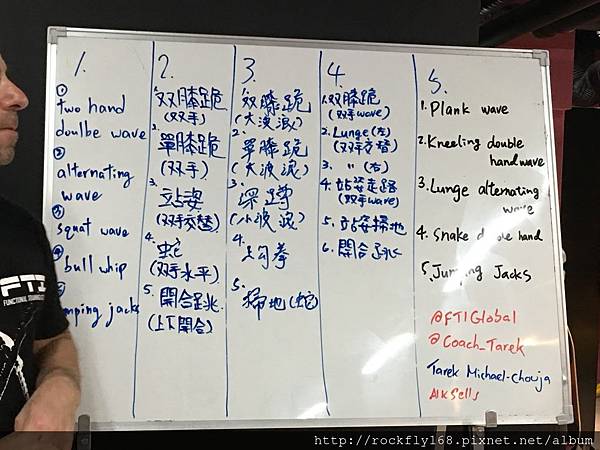 1.
① two hand
doulbe wave
② alternating
wave
③ squat wave
bull whip
mping jacks
2.
1. 双膝跪
(双手)
2. 單膝跪
(双手)
3. 站姿
(双手交替)
4. 蛇
(双手水平)
5. 開合跳
(上下開合)
3.
1. 双膝跪
(大波浪)
2. 單膝跪
(大波浪)
3. 深蹲
(小波浪)
4. 上勾拳
5. 掃地(蛇)
4
1. 双膝跪
(双手wave)
2. Lunge(左)
(双手交替)
3. 〃 (右)
4. 站姿走路
(双手wave)
5. 站姿掃地
6. 開合跳
5.
1. Plank wave
2. Kneeling double
handwave
3. Lunge alternating
wave
4. Snake double hand
5. Jumping Jacks
@FTIGlobal
@Coach_Tarek
Tarek Michael-Chouja
FTI
FUNCTIONAL
http://rockfly168.pixnet.net/album